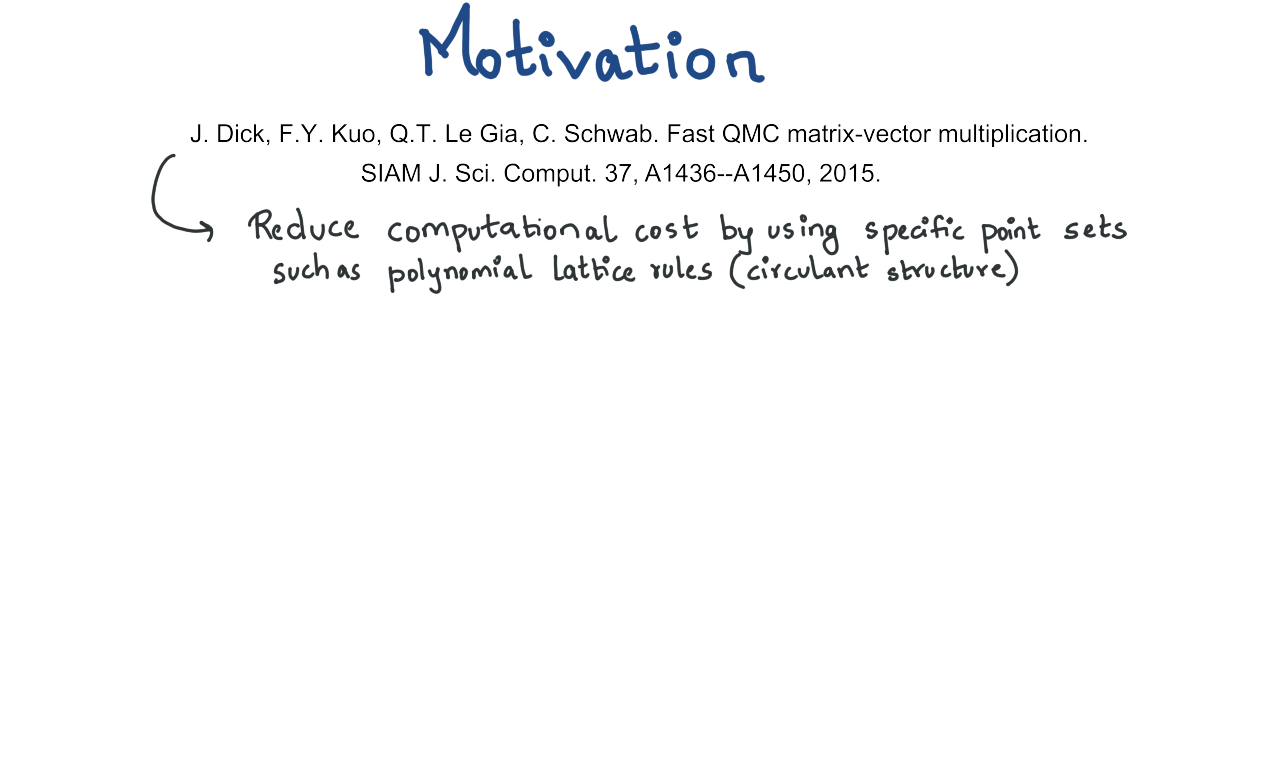 Motivation
J. Dick, F.Y. Kuo, Q.T. Le Gia, C. Schwab. Fast QMC matrix-vector multiplication.
SIAM J. Sci. Comput. 37, A1436--A1450, 2015.
Reduce computational cost by using specific point sets
such as polynomial lattice rules (circulant structure)